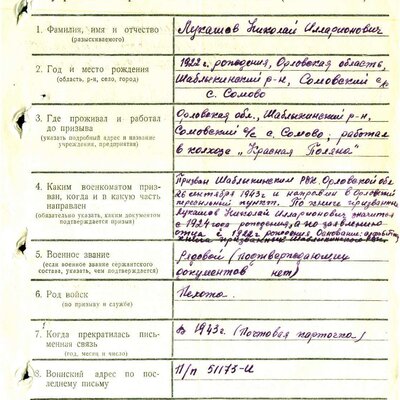 1. Фамилия, имя и отчество
(разыскиваемого)
Лукашов Николай Илларионович
2. Год и место рождения
(область, р-н, село, город)
1922 г. рождения, Орловская область,
Шаблыкинский р-н, Сомовский с/с
с. Сомово
3. Где проживал и работал
до призыва
(указать подробный адрес и название
учреждения, предприятия)
Орловская обл., Шаблыкинский р-н,
Сомовский с/с с. Сомово, работал
в колхозе „Красная Поляна"
4. Каким военкоматом приз-
ван, когда и в какую часть
направлен
(обязательно указать, каким документом
подтверждается призыв)
Призван Шаблыкинским РВК Орловской обл.
26 октября 1943 г и направлен в Орловский
пересыльный пункт. По книге призванных
Лукашов Николай Илларионович значится
с 1924 года рождения, а по заявлению
отца с 1922 г рождения. Основание:
книга призванных Шаблыкинского РВК.
5. Военное звание
(если военное звание сержантского
состава, указать, чем подтверждается)
Рядовой (подтверждающих
документов нет)
6. Род войск
(по призыву и службе)
Пехота.
7. Когда прекратилась пись-
менная связь
(год, месяц и число)
В 1943 г. (Почтовая карточка)
8. Воинский адрес по пос-
леднему письму
П/п 51173-И